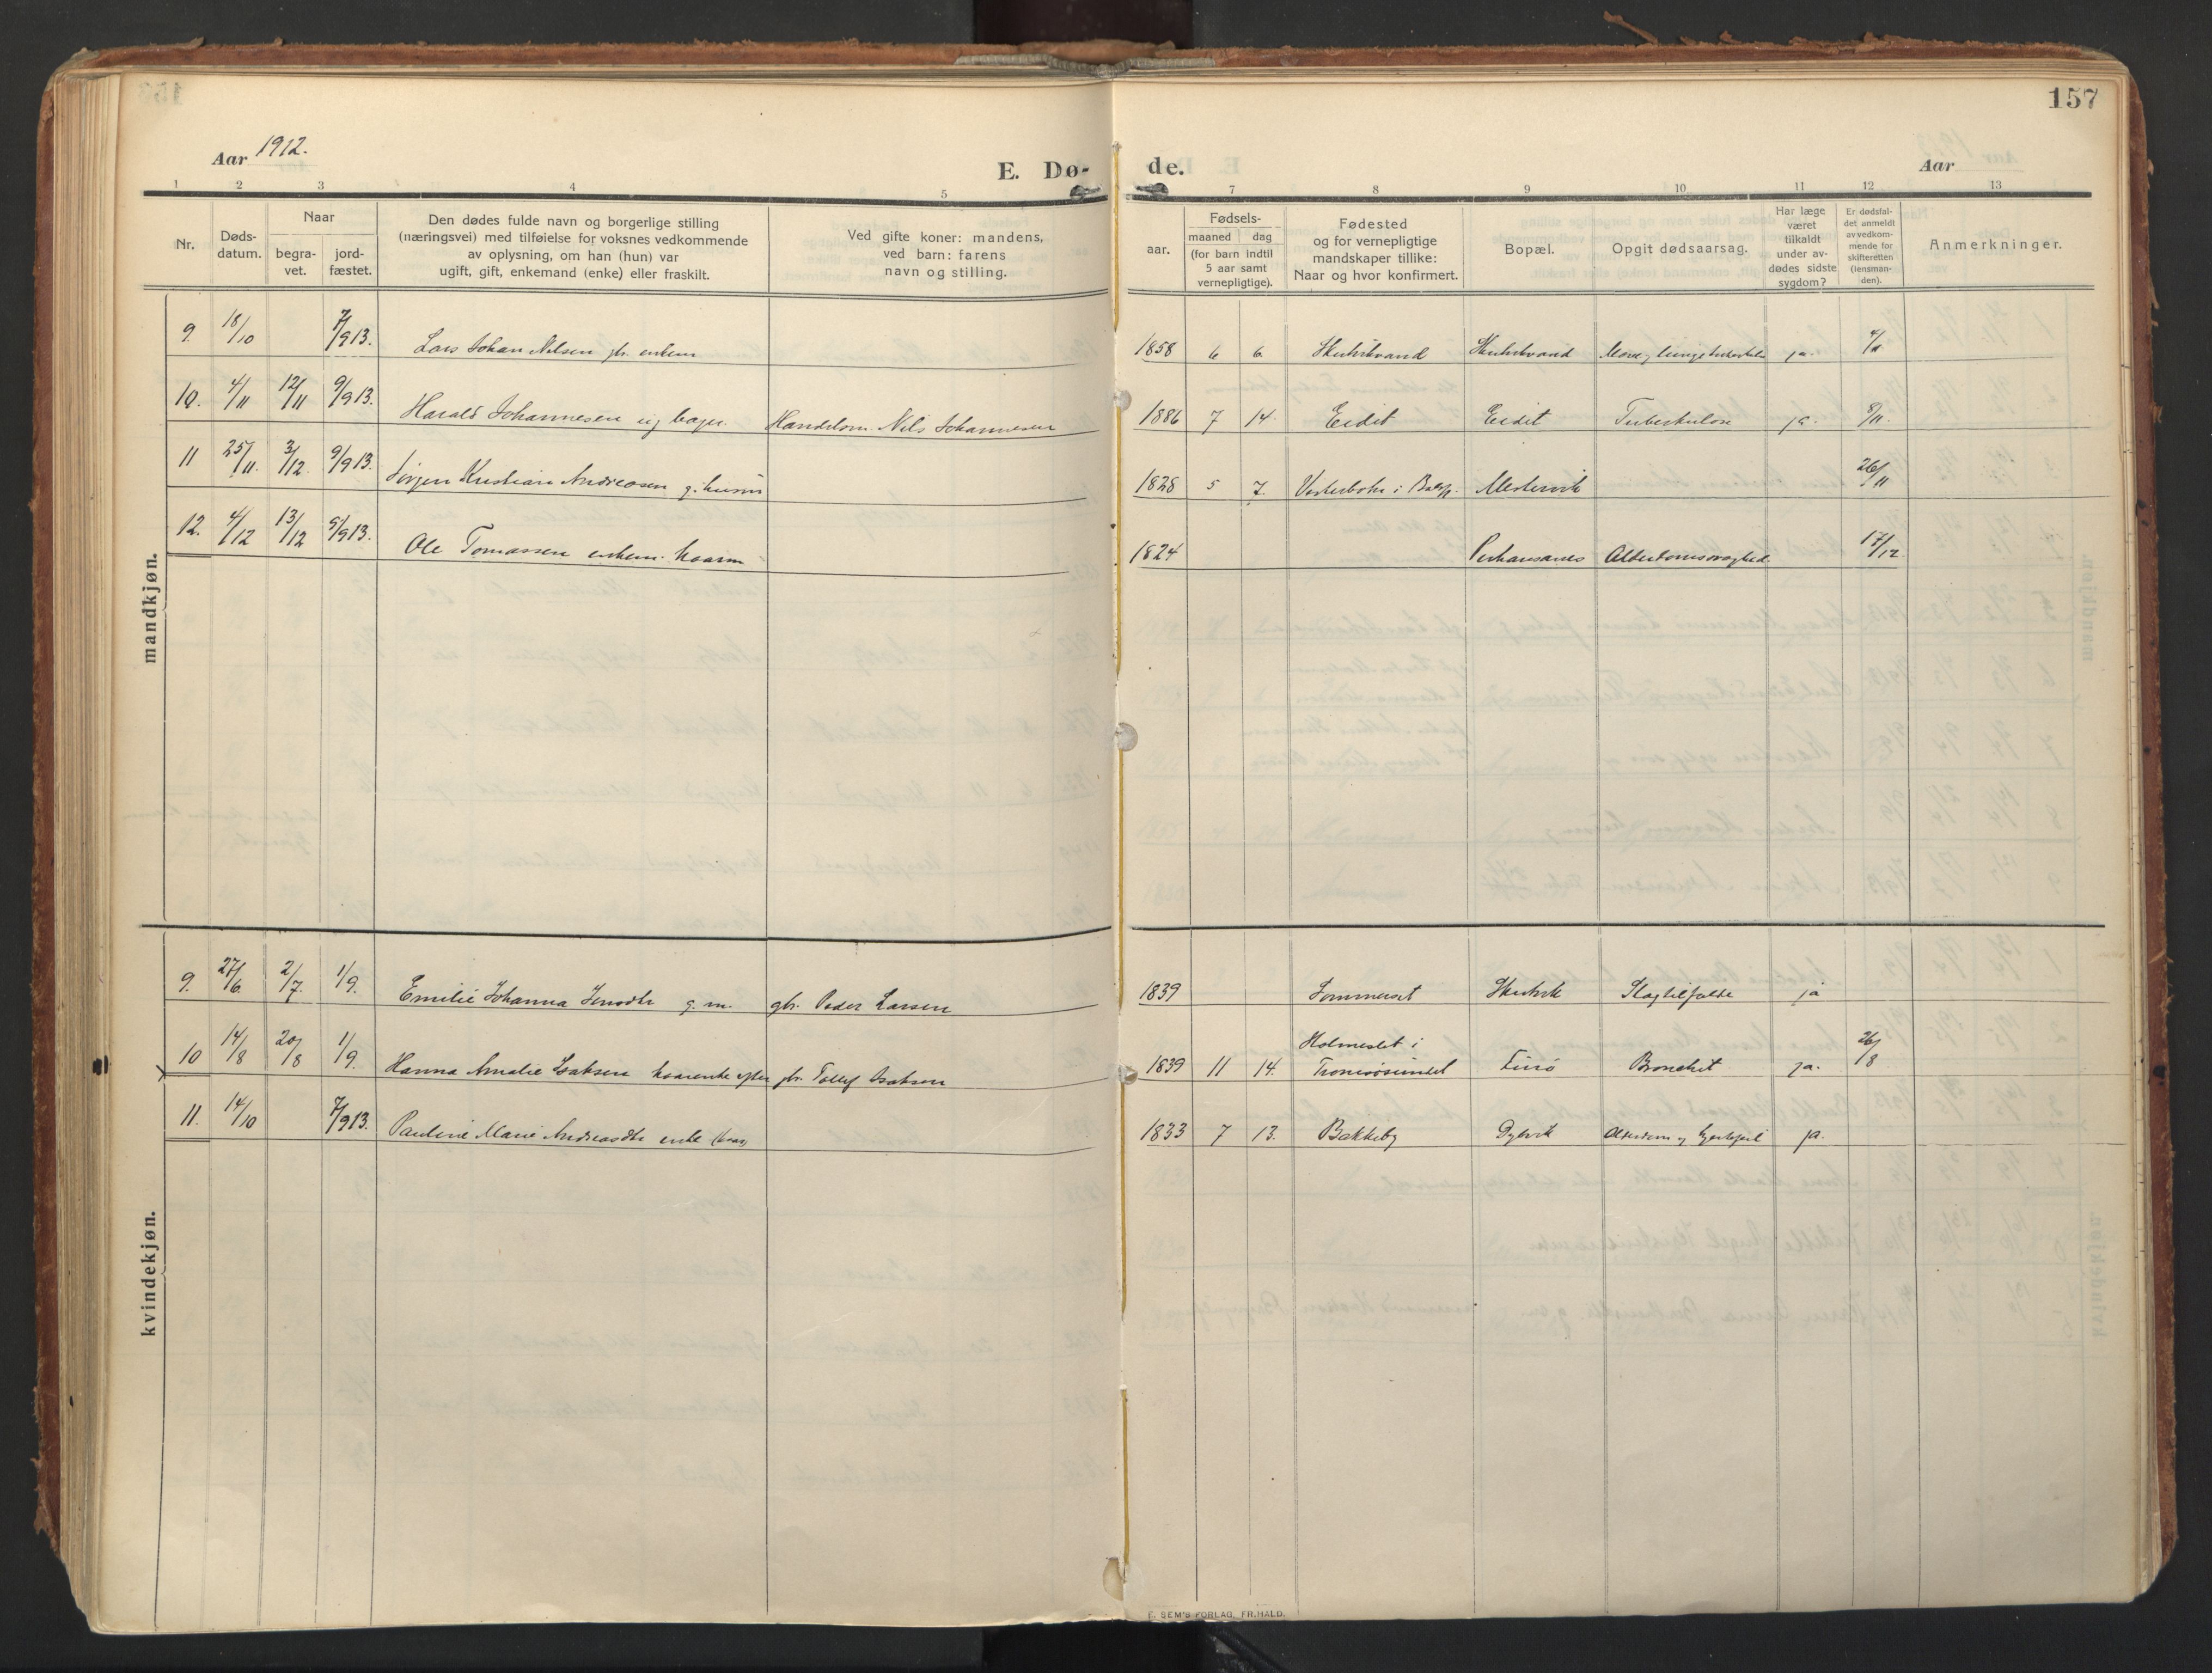 157
Aar 1912.
E. Dø-
de.
Aar
1 2 3 4 5 7 8 9 10 11 12 13
Nr.
Døds-
datum.
Naar
begra-
vet.
jord-
fæstet.
Den dødes fulde navn og borgerlige stilling
(næringsvei) med tilføielse for voksnes vedkommende
av oplysning, om han (hun) var
ugift, gift, enkemand (enke) eller fraskilt.
Ved gifte koner: mandens,
ved barn: farens
navn og stilling.
aar.
Fødsels-
maaned dag
(for barn indtil
5 aar samt
vernepligtige).
Fødested
og for vernepligtige
mandskaper tillike:
Naar og hvor konfirmert.
Bopæl.
Opgit dødsaarsag.
Har læge
været
tilkaldt
under av-
dødes sidste
sygdom?
Er dødsfal-
det anmeldt
av vedkom-
mende for
skifteretten
(lensman-
den).
Anmerkninger.
mandkjøn.
9. 18/10 7/913. Lars Johan Nilsen gbr. enkem 1858 6 6. ja. 4/11
10. 4/11 12/11 9/913. Harald Johannesen ug bager. Handelsm. Nils Johannesen 1886 7 14. Eidet Eidet Tuberkulose ja. 8/11.
11 25/11. 3/12. 9/913. Jørgen Kristian Andreasen g. husm 1828 5 7. i Balsfj. Mestervik 26/11
12. 4/12 13/12 9/913. Ole Tomassen enkem. kaarm 1824 Alderdomssvaghed. 17/12.
kvindekjøn.
9. 27/6. 2/7. 1/9. Emilie Johanna Jensdtr g. m. gbr. Peder Larsen 1839 Sommerset Slagtilfælde ja
10 14/8 20/8 1/9. Hanna Amalie Isaksen kaarenke efter gbr. Tollef Isaksen 1839 11 14. Holmeslet i
Tromsøsundet Bronchit ja. 26/8
11. 14/10 7/913. Pauline Marie Andreasdtr enke (kaar) 1833 7 13. Bakkeby Dybvik Alderdom og hjertefeil ja.
E. SEM'S FORLAG, FR.HALD.